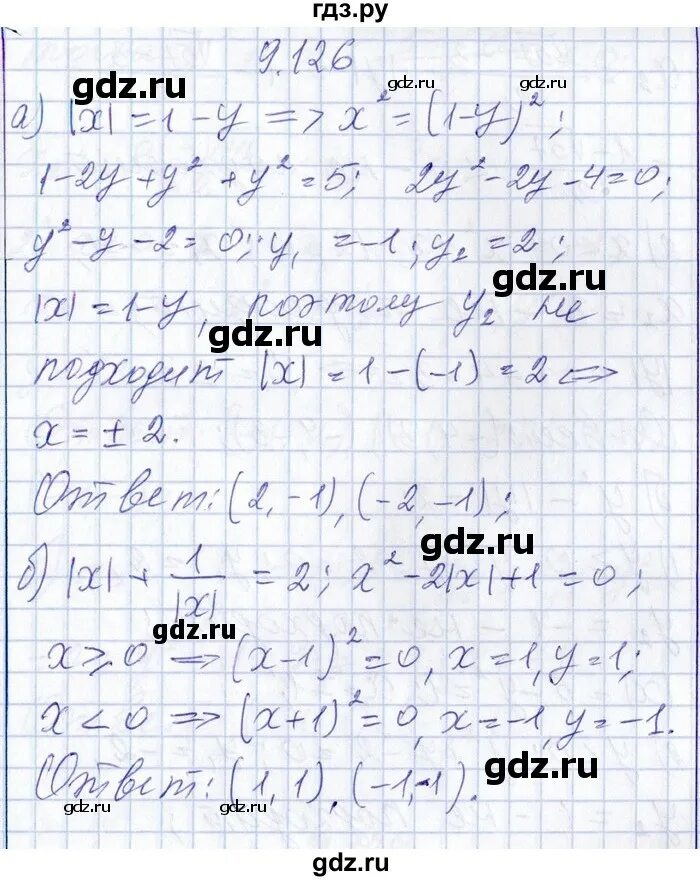 гдз.ру
9.126
gdz.ru gdz.ru
а) |x| = 1 - y => x² = (1-y)²;
1-2y+y²+y²=5; 2y²-2y-4=0;
y²-y-2=0; y₁=-1; y₂=2;
gdz.ru
|x|=1-y, поэтому y₂ не
gdz.ru
подходит |x|=1-(-1)=2 <=>
x=±2.
Ответ: (2,-1), (-2,-1);
gdz.ru
б) |x| + 1/|x| = 2; x²-2|x|+1=0;
gdz.ru
x≥0 => (x-1)²=0, x=1, y=1;
x<0 => (x+1)²=0, x=-1, y=-1.
gdz.ru
Ответ: (1,1), (-1,-1).
gdz.ru
gdz.ru